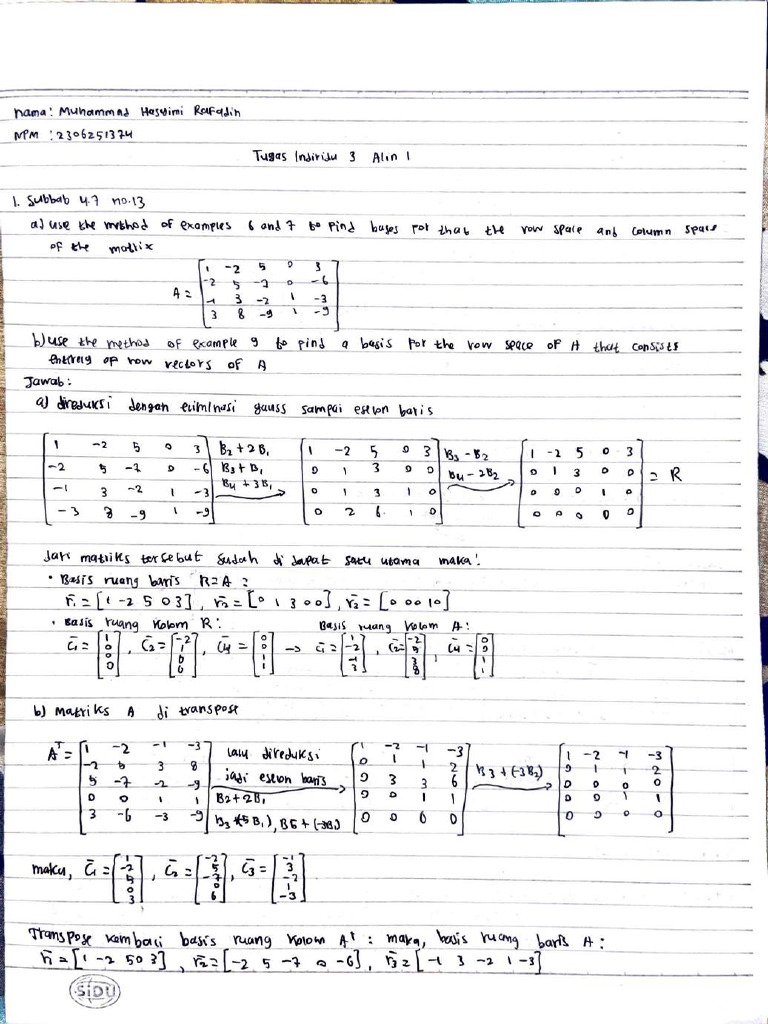 nama: Muhammad Hasyimi Rafadin
NPM : 2306251374
Tugas Individu 3 Alin 1
1. Subbab 4.7 no.13
a) use the method of examples 6 and 7 to find bases for that the row space and column space
of the matrix
A = [1 -2 5 0 3
-2 5 -7 0 -6
-1 3 -2 1 -3
3 8 -9 1 -9]
b) use the method of example 9 to find a basis for the row space of A that consists
entirely of row vectors of A
Jawab:
a) direduksi dengan eliminasi gauss sampai eselon baris
[1 -2 5 0 3 B2 + 2B1 [1 -2 5 0 3 B3 - B2 [1 -2 5 0 3
-2 5 -7 0 -6 B3 + B1 0 1 3 0 0 B4 - 2B2 0 1 3 0 0 = R
-1 3 -2 1 -3 B4 + 3B1 0 1 3 1 0 0 0 0 1 0
-3 8 -9 1 -9] 0 2 6 1 0] 0 0 0 0 0]
dari matriks tersebut sudah di dapat satu utama maka:
• Basis ruang baris R=A :
r̄1 = [1 -2 5 0 3], r̄2 = [0 1 3 0 0], r̄3 = [0 0 0 1 0]
• Basis ruang kolom R: Basis ruang kolom A:
c̄1 = [1 0 0 0], c̄2 = [-2 1 0 0], c̄4 = [0 0 1 1] → c̄1 = [1 -2 -1 3], c̄2 = [-2 5 3 8], c̄4 = [0 0 1 1]
b) Matriks A di transpose
Aᵀ = [1 -2 -1 -3 lalu direduksi [1 -2 -1 -3 B3 + (-3B2) [1 -2 -1 -3
-2 5 3 8 jadi eselon baris 0 1 1 2 0 1 1 2
5 -7 -2 -9 B2+2B1 0 3 3 6 0 0 0 0
0 0 1 1 B3+(5B1), B5+(-3B1) 0 0 1 1 0 0 1 1
3 -6 -3 -9] 0 0 0 0] 0 0 0 0]
maka, c̄1 = [1 -2 5 0 3], c̄2 = [-2 5 -7 0 6], c̄3 = [-1 3 -2 1 -3]
Transpose kembali basis ruang kolom Aᵀ : maka, basis ruang baris A :
r̄1 = [1 -2 5 0 3], r̄2 = [-2 5 -7 0 -6], r̄3 = [-1 3 -2 1 -3]
SiDU